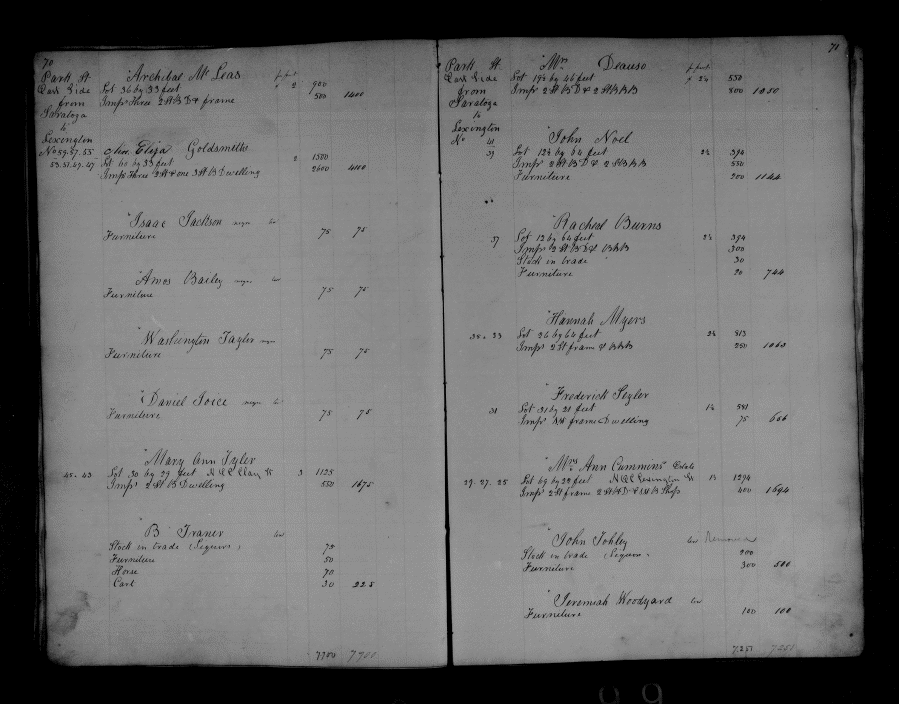 70
Park St
East Side
from
Saratoga
to
Lexington
"Archibal McLeas
pr foot
Lot 36 by 33 feet 2 900
Imps Three 2 St B D & frame 500 1400
No 59.57.55
53.51.49.47
Miss Eliza Goldsmith
Lot 60 by 33 feet 2 1500
Imps Three 2 St & one 3 St B Dwelling 2600 4100
"Isaac Jackson negro
Furniture 75 75
"Amos Bailey negro
Furniture 75 75
"Washington Taylor negro
Furniture 75 75
"Daniel Joice negro
Furniture 75 75
"Mary Ann Tyler
45.43 Lot 30 by 29 feet 3 1125
Imps 2 St B Dwelling 550 1675
"B Traner
Stock in trade (Segars) 75
Furniture 50
Horse 70
Cart 30 225
7700 7700
71
Park St
East Side
from
Saratoga
to
Lexington
"Mrs Deauso
pr foot
Lot by 46 feet 550
Imps 2 St B D & 2 St B B B 500 1050
No 41
39
"John Noel
Lot by 64 feet 394
Imps 2 St B D & 2 St B B B 550
Furniture 200 1144
"Rachael Burns
37 Lot 12 by 64 feet 394
Imps 2 St B D & B B B 300
Stock in trade 30
Furniture 20 744
"Hannah Myers
35.33 Lot 26 by 64 feet 813
Imps 2 St frame & B B B 250 1063
"Frederick Segler
31 Lot 31 by 21 feet 581
Imps frame Dwelling 75 656
"Mrs Ann Cummins' Estate
29.27.25 Lot 69 by feet Lexington St 1294
Imps 2 St frame 400 1694
"John Tohley Removed
Stock in trade (Segars) 200
Furniture 300 500
"Jeremiah Woodyard
Furniture 100 100
7.251 7251